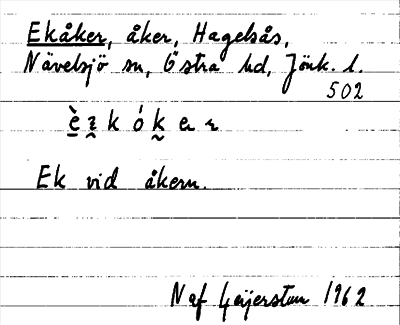 Ekåker, åker, Hagelsås,
Nävelsjö sn, Östra hd, Jönk. l.
502
Ek vid åkern.
N af Geijerstam 1962